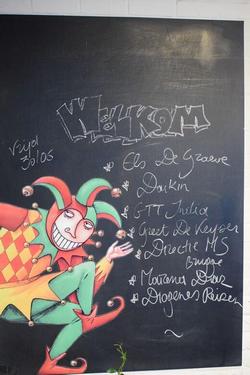 Welkom
Vrijd
30/05
Els De Graeve
Daikin
GTT Julia
Greet De Keyser
Directie MS
Brugge
Diogenes Reizen